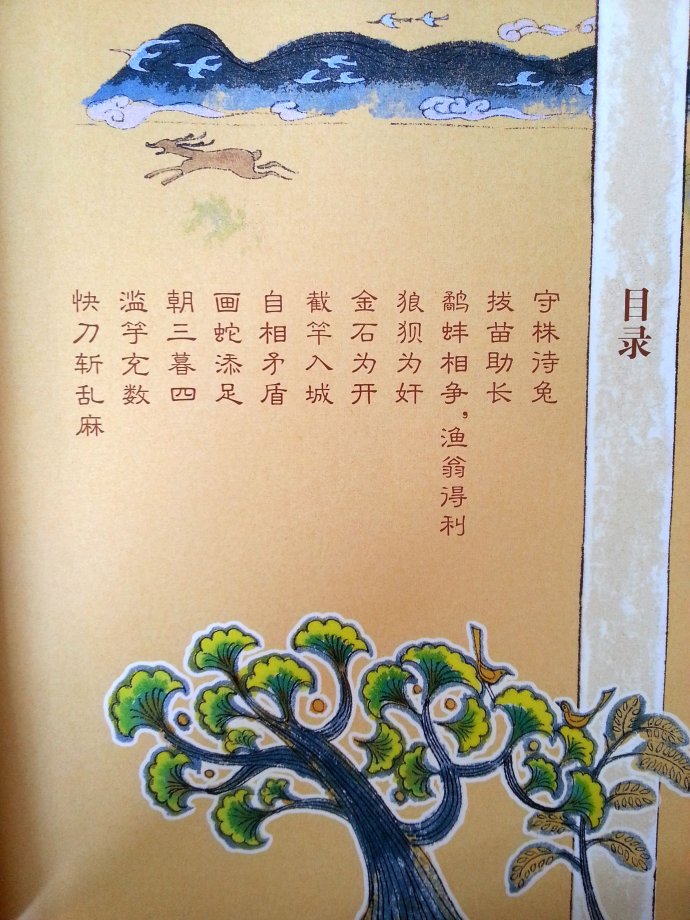 目录
守株待兔
拔苗助长
鹬蚌相争，渔翁得利
狼狈为奸
金石为开
截竿入城
自相矛盾
画蛇添足
朝三暮四
滥竽充数
快刀斩乱麻